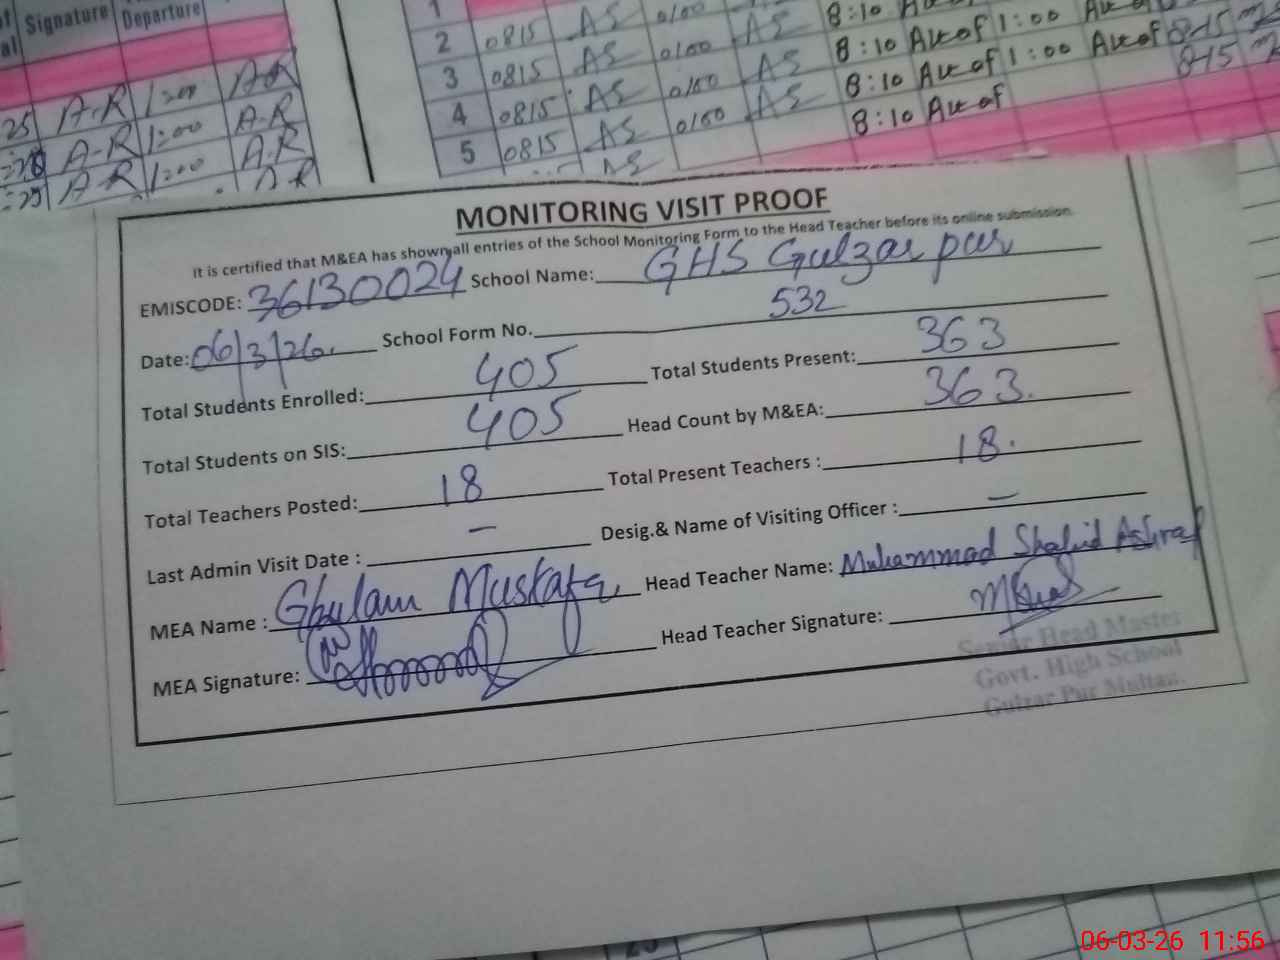 Signature Departure
25 A-R 1:00 A-R
A-R 1:00 A-R
A-R 1:00 A.R
A R
1
2 0815 AS 0100 AS 8:10
3 0815 AS 0100 AS 8:10 1:00
4 0815 AS 0100 AS 8:10 1:00 8-15
5 0815 AS 0100 AS 8:10 8-15
AS
MONITORING VISIT PROOF
It is certified that M&EA has shown all entries of the School Monitoring Form to the Head Teacher before its online submission.
EMISCODE: 36130024 School Name: GHS Gulzar pur
Date: 06/3/26. School Form No. 532
Total Students Enrolled: 405 Total Students Present: 363
Total Students on SIS: 405 Head Count by M&EA: 363.
Total Teachers Posted: 18 Total Present Teachers : 18.
Last Admin Visit Date : — Desig.& Name of Visiting Officer : —
MEA Name : Ghulam Mustafa Head Teacher Name: Muhammad Shahid Ashraf
MEA Signature: Head Teacher Signature:
Senior Head Master
Govt. High School
Gulzar Pur Multan.
06-03-26 11:56